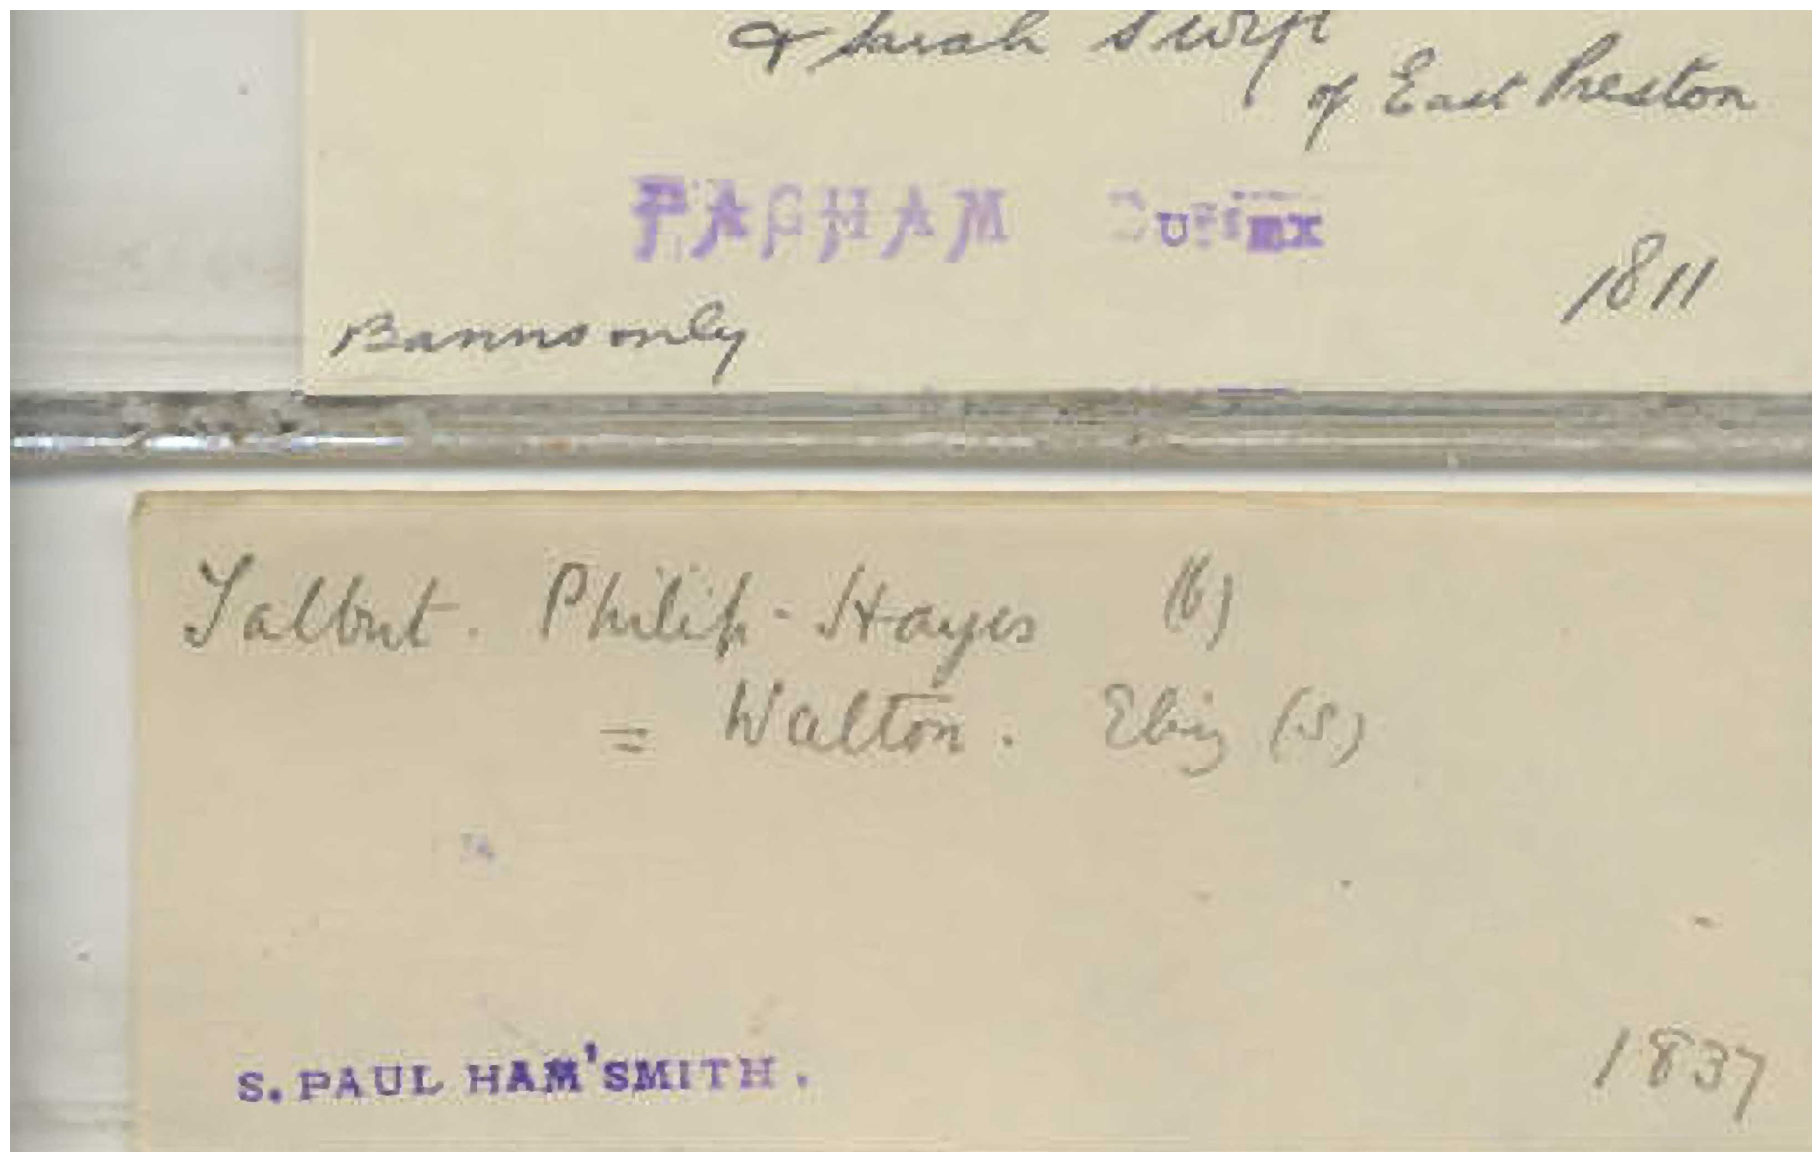 & Sarah Swift
of East Preston
PAGHAM Sussex
1811
Banns only
Talbut. Philip-Hayes (b)
= Walton. Eliz (S)
S. PAUL HAM'SMITH.
1837